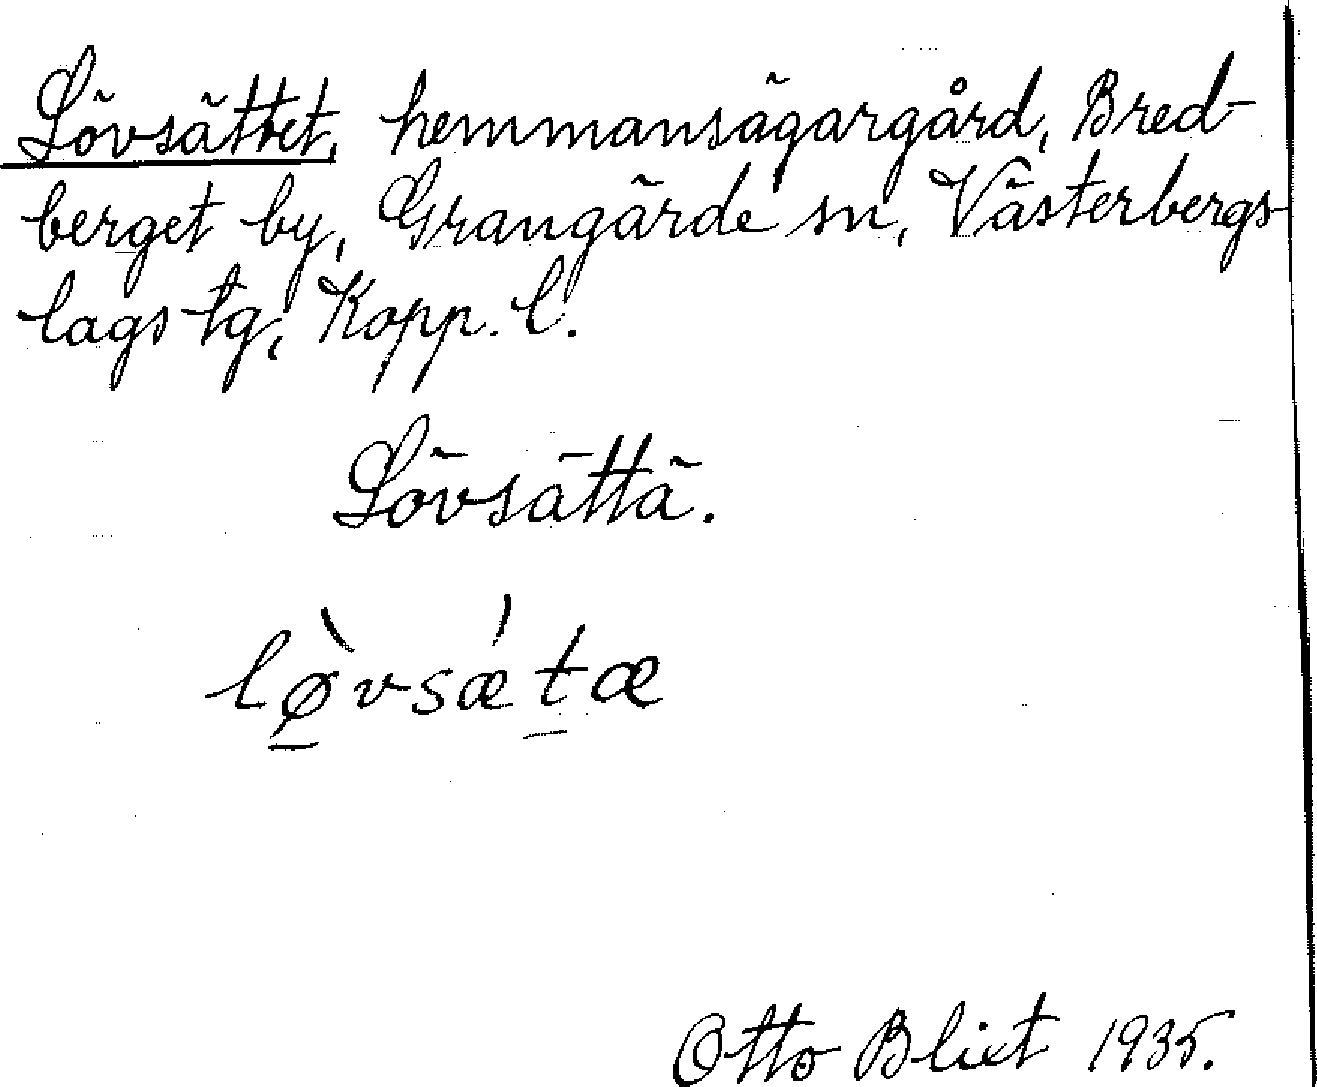 Lövsättet, hemmansägargård, Bred-
berget by, Grangärde sn, Västerbergs
lags tg, Kopp. l.
Lövsättä.
lø̱̀vsǽt̠æ
Otto Blixt 1935.